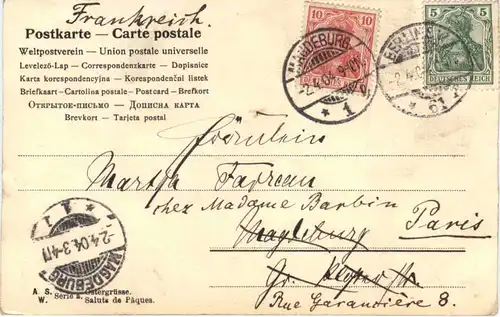 Frankreich.
Postkarte — Carte postale
Weltpostverein — Union postale universelle
Levelező-Lap — Correspondenzkarte — Dopisnice
Karta korespondencyjna — Korespondenčni listek
Briefkaart — Cartolina postale — Postcard — Brefkort
Открытое-письмо — Дописна карта
Brevkort — Tarjeta postal
10 10
5 5
DEUTSCHES REICH
MAGDEBURG
2.4.04
* 1
BERLIN S.W.
* 61
Fräulein
Martha Farreau
chez Madame Barbin
Magdeburg Paris
Gr.
Rue Garandière 8.
MAGDEBURG
2.4.04.3-4N
* 1 *
A S. W. Serie 2. Ostergrüsse.
Saluts de Pâques.